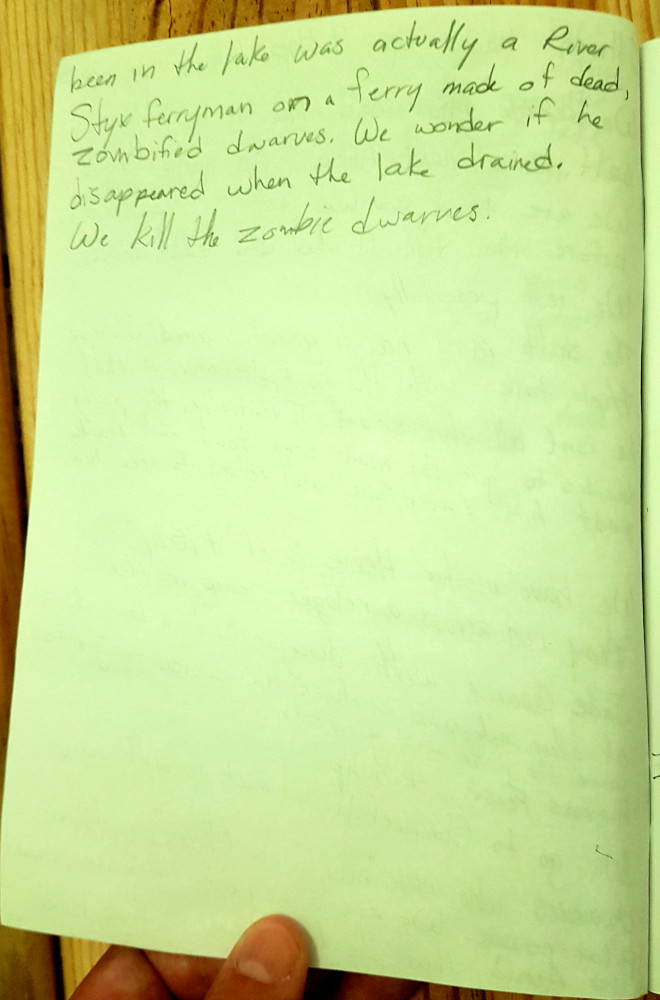 been in the lake was actually a River
Styx ferryman on a ferry made of dead,
zombified dwarves. We wonder if he
disappeared when the lake drained.
We kill the zombie dwarves.